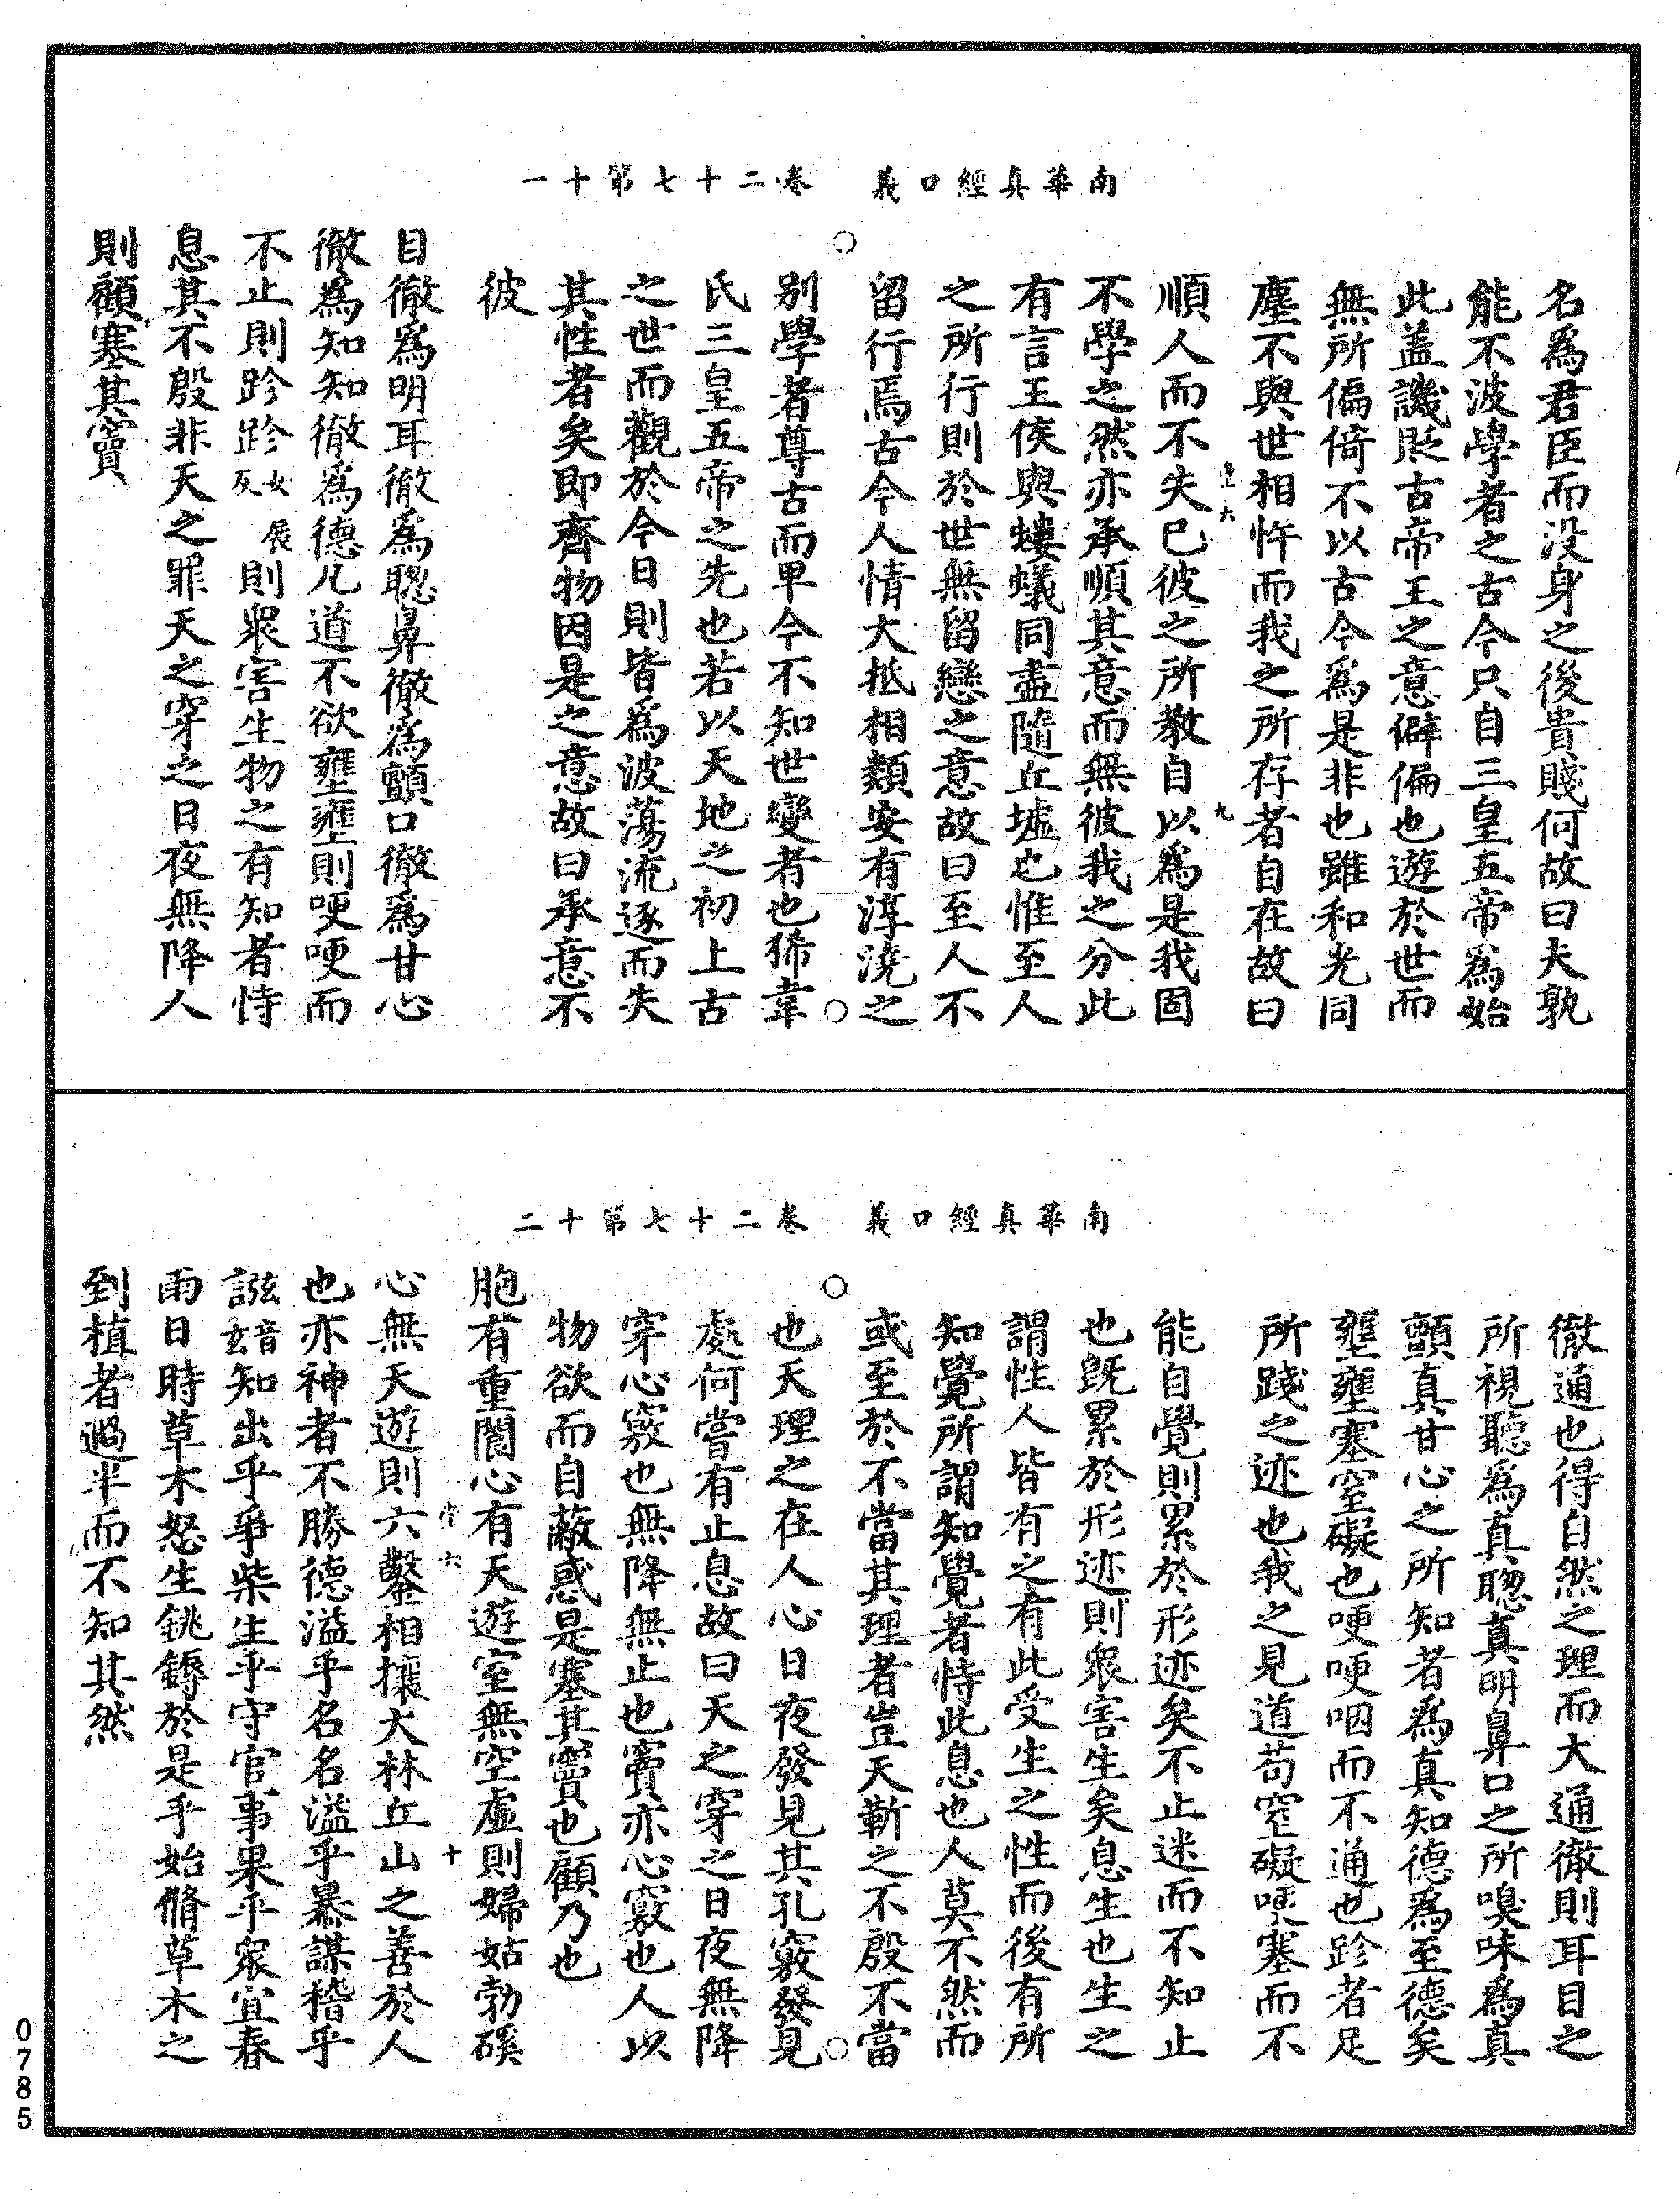 南華真經口義　卷二十七第十一
名爲君臣而没身之後貴賤何故曰夫孰
能不波學者之古今只自三皇五帝爲始
此盖譏貶古帝王之意僻偏也遊於世而
無所偏倚不以古今爲是非也雖和光同
塵不與世相忤而我之所存者自在故曰
順人而不失已彼之所教自以爲是我固
不學之然亦承順其意而無彼我之分此
有言王侯與螻蟻同盡隨丘墟也惟至人
之所行則於世無留戀之意故曰至人不
留行焉古今人情大抵相類安有淳澆之
别學者尊古而卑今不知世變者也狶韋
氏三皇五帝之先也若以天地之初上古
之世而觀於今日則皆爲波蕩流逐而失
其性者矣即齊物因是之意故曰承意不
彼
目徹爲明耳徹爲聰鼻徹爲顫口徹爲甘心
徹爲知知徹爲德凡道不欲壅壅則哽哽而
不止則跈跈女展反則衆害生物之有知者恃
息其不殷非天之罪天之穿之日夜無降人
則顧塞其竇
南華真經口義　卷二十七第十二
徹通也得自然之理而大通徹則耳目之
所視聽爲真聰真明鼻口之所嗅味爲真
顫真甘心之所知者爲真知德爲至德矣
壅壅塞窒礙也哽哽咽而不通也跈者足
所踐之迹也我之見道苟窒礙哽塞而不
能自覺則累於形迹矣不止迷而不知止
也旣累於形迹則衆害生矣息生也生之
謂性人皆有之有此受生之性而後有所
知覺所謂知覺者恃此息也人莫不然而
或至於不當其理者豈天靳之不殷不當
也天理之在人心日夜發見其孔竅發見
處何嘗有止息故曰天之穿之日夜無降
穿心竅也無降無止也竇亦心竅也人以
物欲而自蔽惑是塞其竇也顧乃也
胞有重閬心有天遊室無空虛則婦姑勃磎
心無天遊則六鑿相攘大林丘山之善於人
也亦神者不勝德溢乎名名溢乎暴謀稽乎
誸音玄知出乎爭柴生乎守官事果乎衆宜春
雨日時草木怒生銚鎒於是乎始脩草木之
到植者過半而不知其然
0785